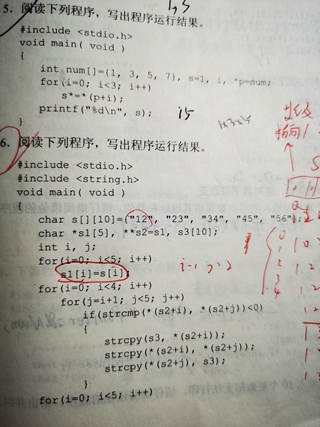 5. 阅读下列程序，写出程序运行结果。
#include <stdio.h>
void main( void )
{
int num[]={1, 3, 5, 7}, s=1, i, *p=num;
for(i=0; i<3; i++)
s*=*(p+i);
printf("%d\n", s);
15
6. 阅读下列程序，写出程序运行结果。
#include <stdio.h>
#include <string.h>
void main( void )
{
char s[][10]={"12", "23", "34", "45", "56"};
char *s1[5], **s2=s1, s3[10];
int i, j;
for(i=0; i<5; i++)
s1[i]=s[i];
for(i=0; i<4; i++)
for(j=i+1; j<5; j++)
if(strcmp(*(s2+i), *(s2+j))<0)
{
strcpy(s3, *(s2+i));
strcpy(*(s2+i), *(s2+j));
strcpy(*(s2+j), s3);
}
for(i=0; i<5; i++)